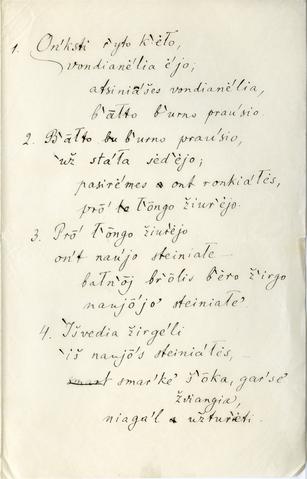 1. Oṅksti ryto kėlo,
vondianėlia ėjo;
atsiniášes vondianėlia,
bàlto burno praúsio.
2. Bàlto burno praúsio,
už stala sėdėjo;
pasirėmes ont ronkiálės,
pro lòngo žiurėjo.
3. Pro lòngo žiurėjo
ont naújo steiniale
balnõj brõlis bėro žirgo
naujõjo steiniale.
4. Išvedia žirgeli
iš naujõs steiniálės, —
smarkė šõka, garsė
žviangia,
niagál užturėti.